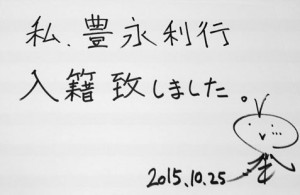 私、豊永利行
入籍致しました。
2015.10.25